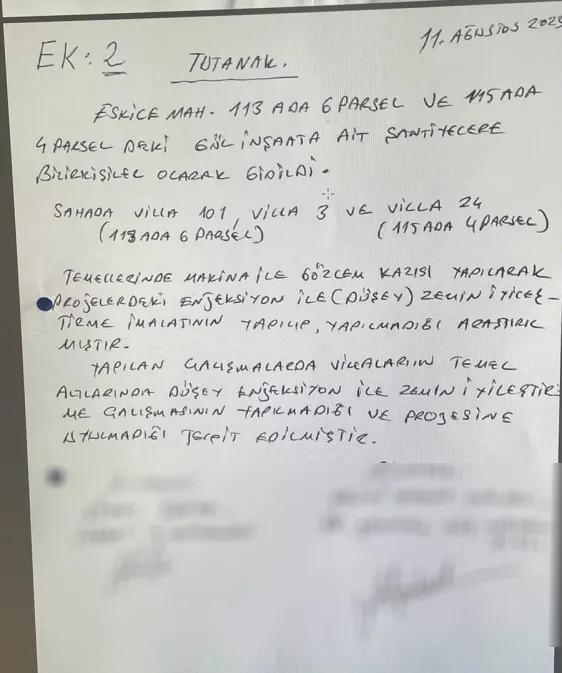 11. AĞUSTOS 2025
EK: 2
TUTANAK.
ESKİCE MAH. 113 ADA 6 PARSEL VE 115 ADA
4 PARSEL DEKİ GÜL İNŞAATA AİT ŞANTİYELERE
BİLİRKİŞİLER OLARAK GİDİLDİ.
SAHADA VİLLA 101, VİLLA 3 VE VİLLA 24
(113 ADA 6 PARSEL) (115 ADA 4 PARSEL)
TEMELLERİNDE MAKİNA İLE GÖZLEM KAZISI YAPILARAK
PROJELERDEKİ ENJEKSİYON İLE (DÜŞEY) ZEMİN İYİLEŞ-
TİRME İMALATININ YAPILIP, YAPILMADIĞI ARAŞTIRIL
MIŞTIR.
YAPILAN ÇALIŞMALARDA VİLLALARIN TEMEL
ALTLARINDA DÜŞEY ENJEKSİYON İLE ZEMİN İYİLEŞTİR
ME ÇALIŞMASININ YAPILMADIĞI VE PROJESİNE
UYULMADIĞI TESPİT EDİLMİŞTİR.